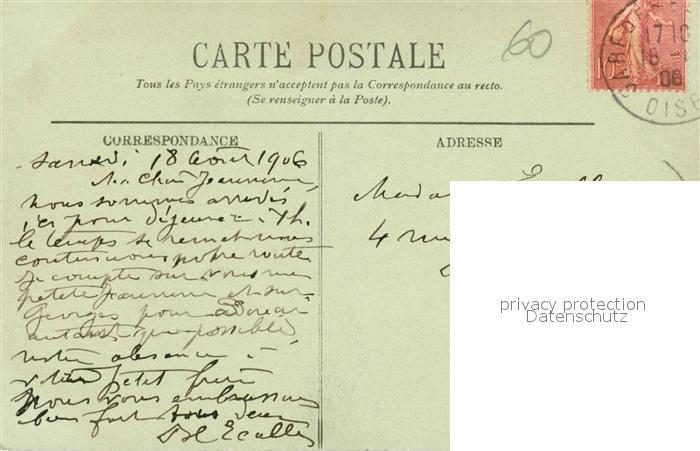 60
GARE DE
17 10
8
06
OISE
10
CARTE POSTALE
Tous les Pays étrangers n'acceptent pas la Correspondance au recto.
(Se renseigner à la Poste).
CORRESPONDANCE
Samedi 18 Août 1906
Ma Chère Jeannine,
nous sommes arrivés
ici pour déjeuner
le temps se remet nous
continuons notre route
Je compte sur vous ma
petite Jeannine et sur
Georges pour adoucir
autant que possible
notre absence à
votre petit frère
Nous vous embrassons
bien fort tous deux
ADRESSE
4 rue
privacy protection
Datenschutz